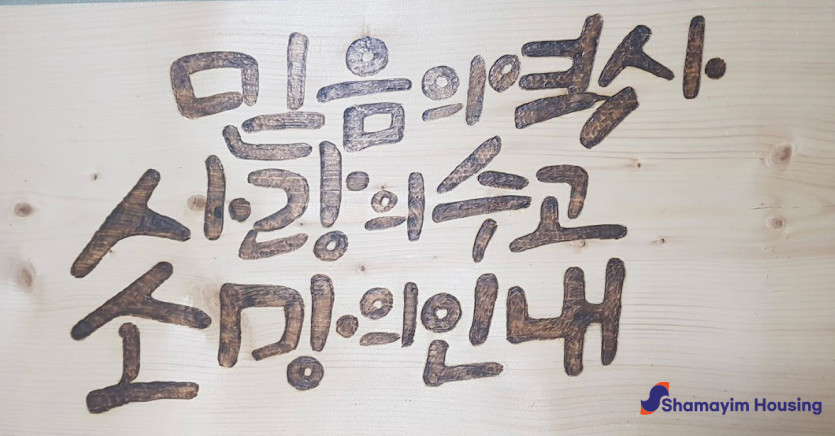 믿음의역사
사랑의수고
소망의인내
Shamayim Housing